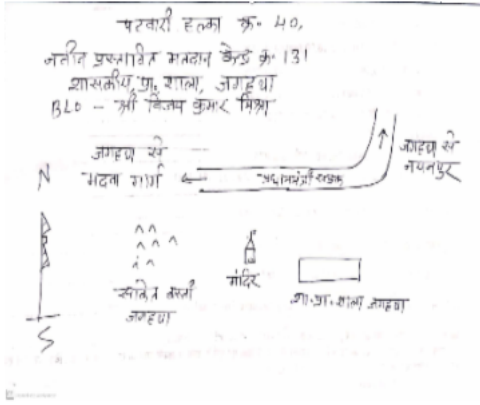 पटवारी हल्का क्र. 40,
नवीन प्रस्तावित मतदान केन्द्र क्र. 131
शासकीय प्रा. शाला, जगहथा
BLO - श्री विजय कुमार मिश्रा
जगहथा से
मढवा मार्ग
प्रधानमंत्री सड़क
जगहथा से
नयनपुर
N
S
साकेत बस्ती
जगहथा
मंदिर
शा. प्रा. शाला जगहथा